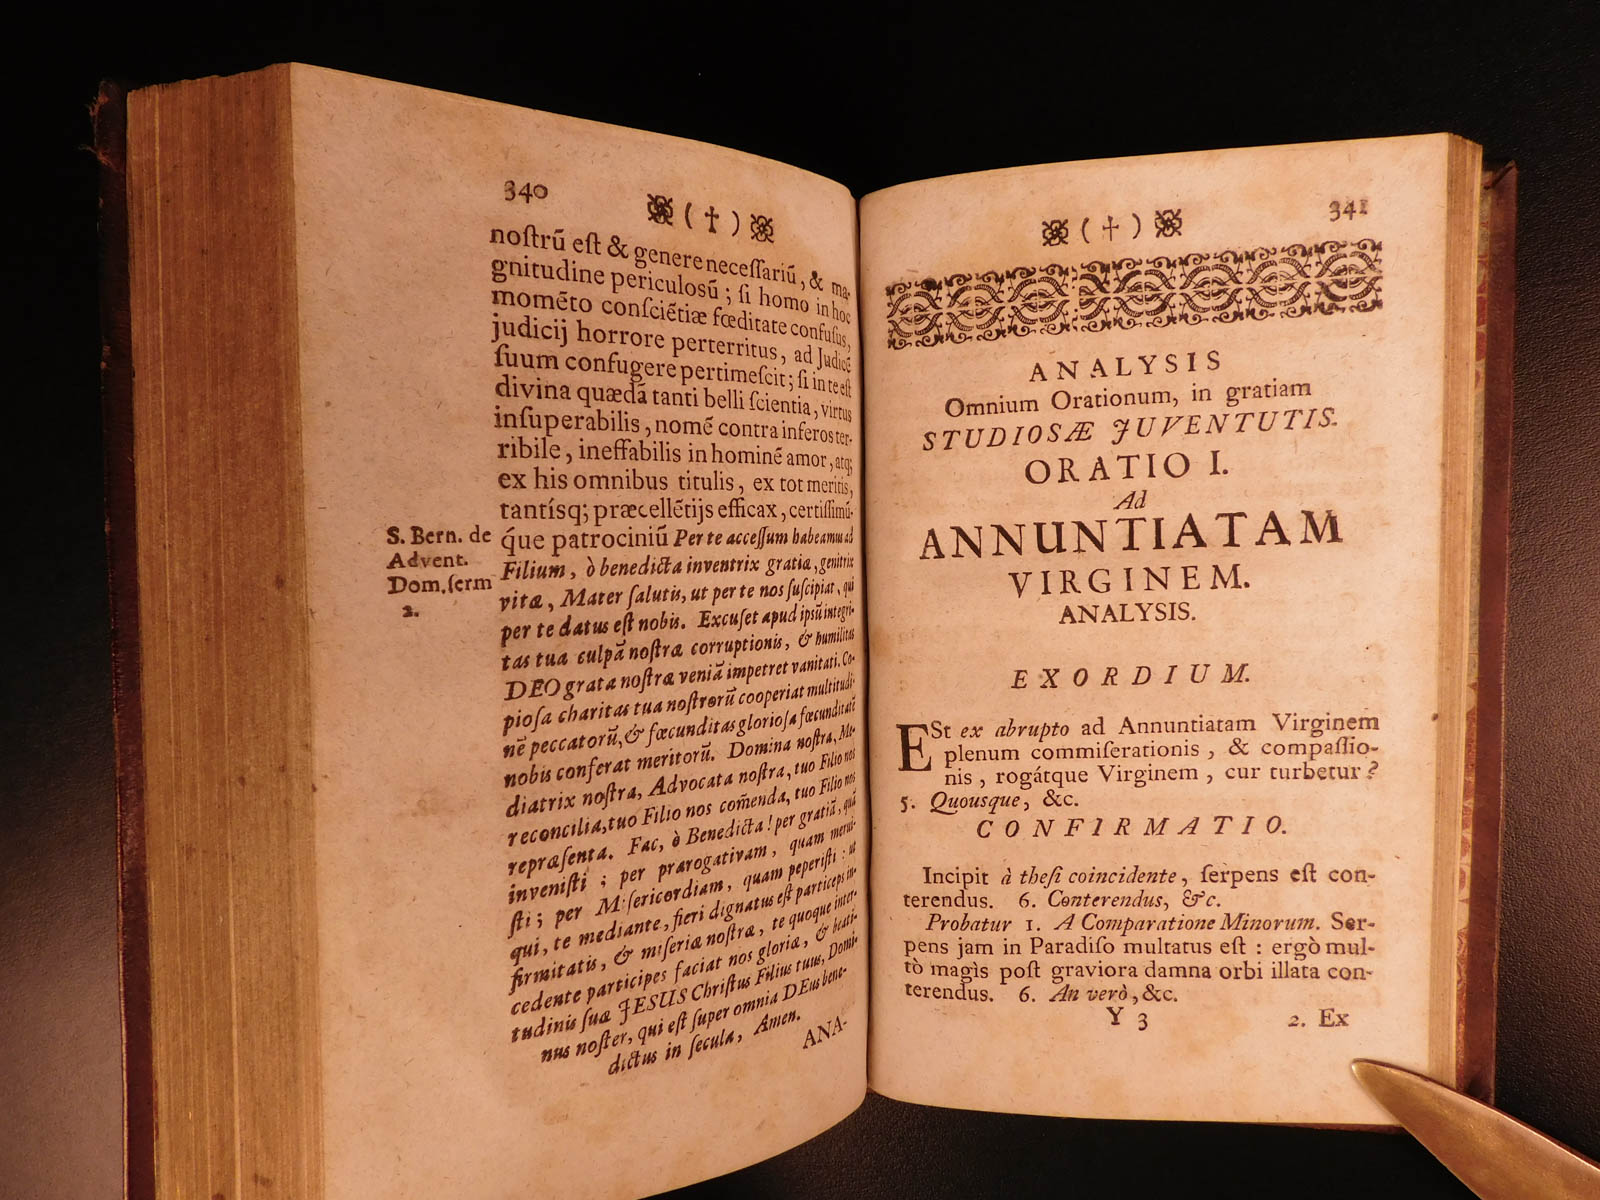 340
( † )
noſtrũ eſt & genere neceſſariũ, & ma-
gnitudine periculosũ; ſi homo in hoc
momẽto conſciẽtiæ fœditate confuſus,
judicij horrore perterritus, ad Judicẽ
ſuum confugere pertimeſcit; ſi in te eſt
divina quædã tanti belli ſcientia, virtus
inſuperabilis, nomẽ contra inferos ter-
ribile, ineffabilis in hominẽ amor, atq;
ex his omnibus titulis, ex tot meritis,
tantíſq; præcellẽtijs efficax, certiſſimũ-
q́ue patrociniũ Per te acceſſum habeamus ad
Filium, ò benedicta inventrix gratiæ, genitrix
vitæ, Mater ſalutis, ut per te nos ſuſcipiat, qui
per te datus eſt nobis. Excuſet apud ipsũ integri-
tas tua culpã noſtræ corruptionis, & humilitas
DEO grata noſtræ veniã impetret vanitati. Co-
pioſa charitas tua noſtrorũ cooperiat multitudi-
nẽ peccatorũ, & fœcunditas glorioſa fœcunditatẽ
nobis conferat meritorũ. Domina noſtra, Me-
diatrix noſtra, Advocata noſtra, tuo Filio nos
reconcilia, tuo Filio nos com̃enda, tuo Filio nos
repræſenta. Fac, ò Benedicta! per gratiã, quã
inveniſti; per prærogativam, quam merui-
ſti; per Miſericordiam, quam peperiſti: ut
qui, te mediante, fieri dignatus eſt particeps in-
firmitatis, & miſeriæ noſtræ, te quoque inter-
cedente participes faciat nos gloriæ, & beati-
tudinis ſuæ JESUS Chriſtus Filius tuus, Domi-
nus noſter, qui eſt ſuper omnia DEus bene-
dictus in ſecula, Amen.
ANA-
S. Bern. de
Advent.
Dom. ſerm
2.
341
( † )
ANALYSIS
Omnium Orationum, in gratiam
STUDIOSÆ JUVENTUTIS.
ORATIO I.
Ad
ANNUNTIATAM
VIRGINEM.
ANALYSIS.
EXORDIUM.
ESt ex abrupto ad Annuntiatam Virginem
plenum commiſerationis, & compaſſio-
nis, rogátque Virginem, cur turbetur?
5. Quousque, &c.
CONFIRMATIO.
Incipit à theſi coincidente, ſerpens eſt con-
terendus. 6. Conterendus, &c.
Probatur 1. A Comparatione Minorum. Ser-
pens jam in Paradiſo multatus eſt: ergò mul-
tò magìs poſt graviora damna orbi illata con-
terendus. 6. An verò, &c.
Y 3
2. Ex